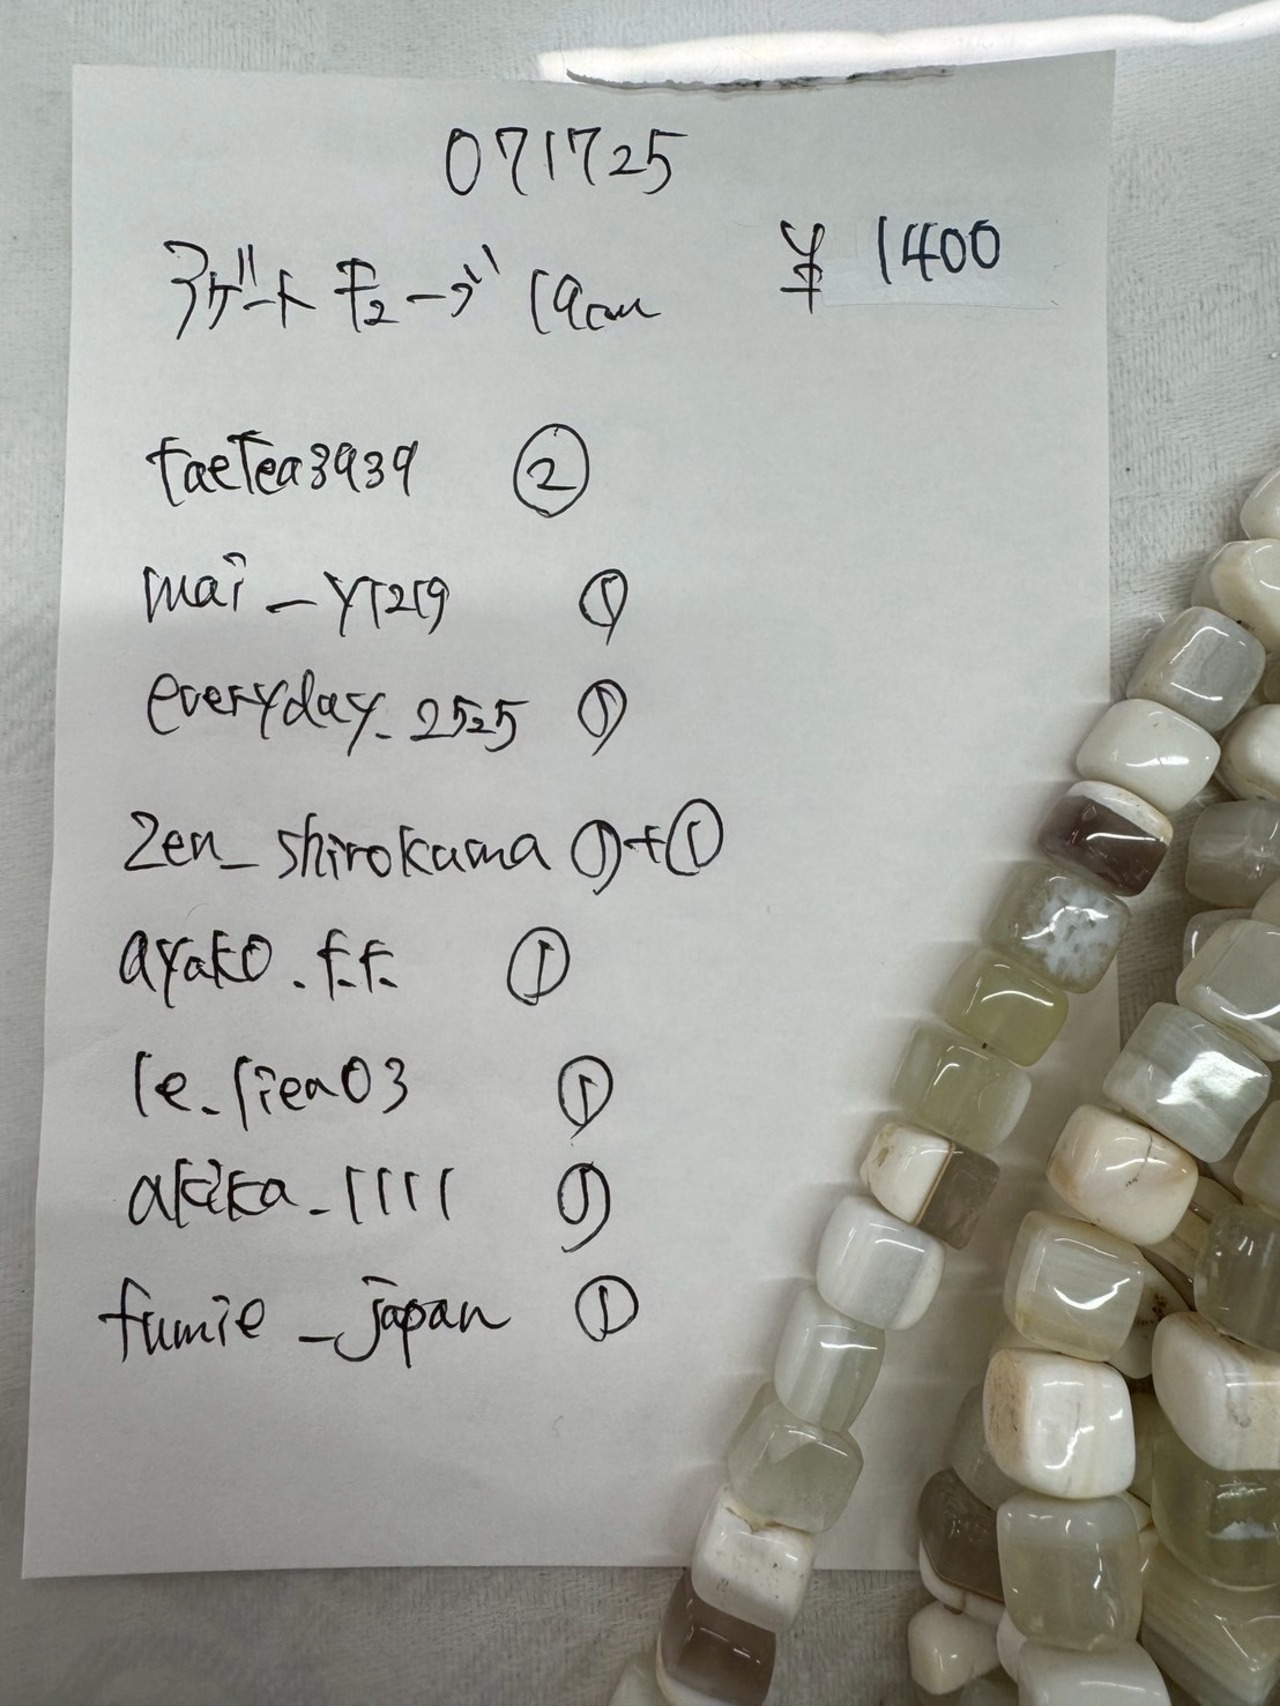 071725
アゲートキューブ 19cm ¥ 1400
taetea3939 ②
mai_y1219 ①
everyday_2525 ①
zen_shirokuma ①+①
ayako.f.f. ①
le_lien03 ①
akika_1111 ①
fumie_japan ①